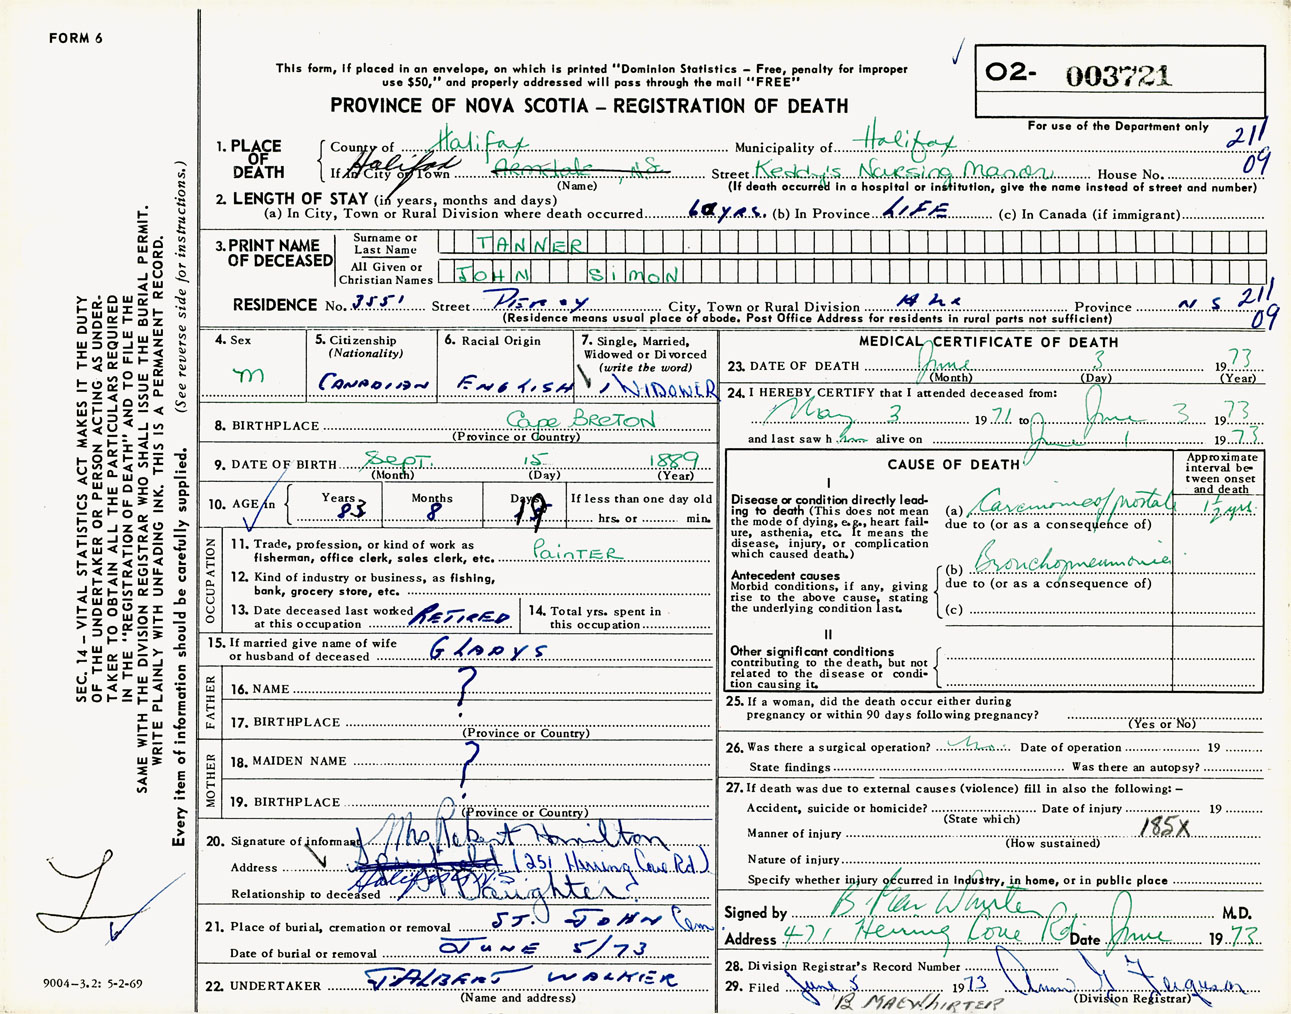 FORM 6
This form, if placed in an envelope, on which is printed "Dominion Statistics – Free, penalty for improper
use $50," and properly addressed will pass through the mail "FREE"
PROVINCE OF NOVA SCOTIA – REGISTRATION OF DEATH
02- 003721
For use of the Department only
211
09
SEC. 14 – VITAL STATISTICS ACT MAKES IT THE DUTY
OF THE UNDERTAKER OR PERSON ACTING AS UNDER-
TAKER TO OBTAIN ALL THE PARTICULARS REQUIRED
IN THE "REGISTRATION OF DEATH" AND TO FILE THE
SAME WITH THE DIVISION REGISTRAR WHO SHALL ISSUE THE BURIAL PERMIT.
WRITE PLAINLY WITH UNFADING INK. THIS IS A PERMANENT RECORD.
Every item of information should be carefully supplied. (See reverse side for instructions.)
1. PLACE OF DEATH
County of Halifax Municipality of Halifax
If in City or Town Halifax Armdale, N.S. Street Keddy's Nursing Manor House No.
(Name) (If death occurred in a hospital or institution, give the name instead of street and number)
2. LENGTH OF STAY (in years, months and days)
(a) In City, Town or Rural Division where death occurred 60 yrs. (b) In Province LIFE (c) In Canada (if immigrant)
3. PRINT NAME OF DECEASED
Surname or Last Name TANNER
All Given or Christian Names JOHN SIMON
RESIDENCE No. 3551 Street Percy City, Town or Rural Division Hfx Province N S 211
09
(Residence means usual place of abode. Post Office Address for residents in rural parts not sufficient)
4. Sex M
5. Citizenship (Nationality) CANADIAN
6. Racial Origin ENGLISH
7. Single, Married, Widowed or Divorced (write the word) WIDOWER
8. BIRTHPLACE Cape BRETON
(Province or Country)
9. DATE OF BIRTH Sept. 15 1889
(Month) (Day) (Year)
10. AGE in Years 83 Months 8 Days If less than one day old hrs. or min.
OCCUPATION
11. Trade, profession, or kind of work as fisherman, office clerk, sales clerk, etc. PAINTER
12. Kind of industry or business, as fishing, bank, grocery store, etc.
13. Date deceased last worked at this occupation RETIRED
14. Total yrs. spent in this occupation
15. If married give name of wife or husband of deceased GLADYS
FATHER
16. NAME ?
17. BIRTHPLACE
(Province or Country)
MOTHER
18. MAIDEN NAME ?
19. BIRTHPLACE
(Province or Country)
20. Signature of informant Mrs Robert Hamilton
Address (251 Herring Cove Rd.)
Halifax N.S
Relationship to deceased Daughter.
21. Place of burial, cremation or removal ST. JOHN Cem
Date of burial or removal JUNE 5/73
22. UNDERTAKER J. ALBERT WALKER
(Name and address)
MEDICAL CERTIFICATE OF DEATH
23. DATE OF DEATH June 3 1973
(Month) (Day) (Year)
24. I HEREBY CERTIFY that I attended deceased from:
May 3 1971 to June 3 1973
and last saw him alive on June 1 1973
CAUSE OF DEATH
Approximate interval between onset and death
I
Disease or condition directly leading to death (This does not mean the mode of dying, e.g., heart failure, asthenia, etc. It means the disease, injury, or complication which caused death.)
(a) Carcinoma of prostate 1½ yrs.
due to (or as a consequence of)
Antecedent causes
Morbid conditions, if any, giving rise to the above cause, stating the underlying condition last.
(b) Bronchopneumonia
due to (or as a consequence of)
(c)
II
Other significant conditions
contributing to the death, but not related to the disease or condition causing it.
25. If a woman, did the death occur either during pregnancy or within 90 days following pregnancy?
(Yes or No)
26. Was there a surgical operation? No. Date of operation 19
State findings Was there an autopsy?
27. If death was due to external causes (violence) fill in also the following: –
Accident, suicide or homicide? Date of injury 19
(State which)
Manner of injury 185X
(How sustained)
Nature of injury
Specify whether injury occurred in Industry, in home, or in public place
Signed by M.D.
Address 471 Herring Cove Rd. Date June 1973
28. Division Registrar's Record Number
29. Filed June 5 1973 Ferguson
(Division Registrar)
B MACWHIRTER
9004–3.2: 5-2-69